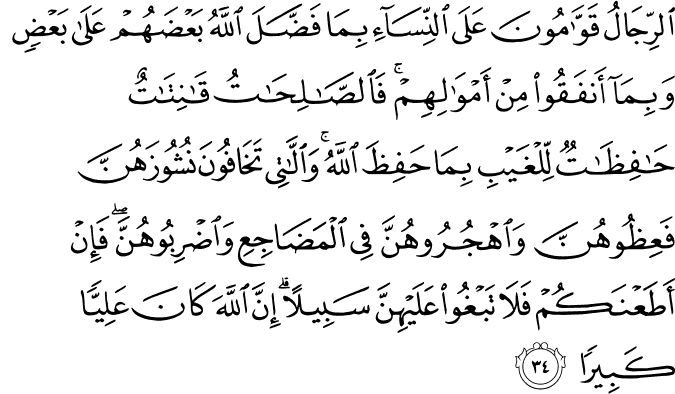 ٱلرِّجَالُ قَوَّٰمُونَ عَلَى ٱلنِّسَآءِ بِمَا فَضَّلَ ٱللَّهُ بَعْضَهُمْ عَلَىٰ بَعْضٍ
وَبِمَآ أَنفَقُوا۟ مِنْ أَمْوَٰلِهِمْ ۚ فَٱلصَّٰلِحَٰتُ قَٰنِتَٰتٌ
حَٰفِظَٰتٌ لِّلْغَيْبِ بِمَا حَفِظَ ٱللَّهُ ۚ وَٱلَّٰتِى تَخَافُونَ نُشُوزَهُنَّ
فَعِظُوهُنَّ وَٱهْجُرُوهُنَّ فِى ٱلْمَضَاجِعِ وَٱضْرِبُوهُنَّ ۖ فَإِنْ
أَطَعْنَكُمْ فَلَا تَبْغُوا۟ عَلَيْهِنَّ سَبِيلًا ۗ إِنَّ ٱللَّهَ كَانَ عَلِيًّا
كَبِيرًا ٣٤